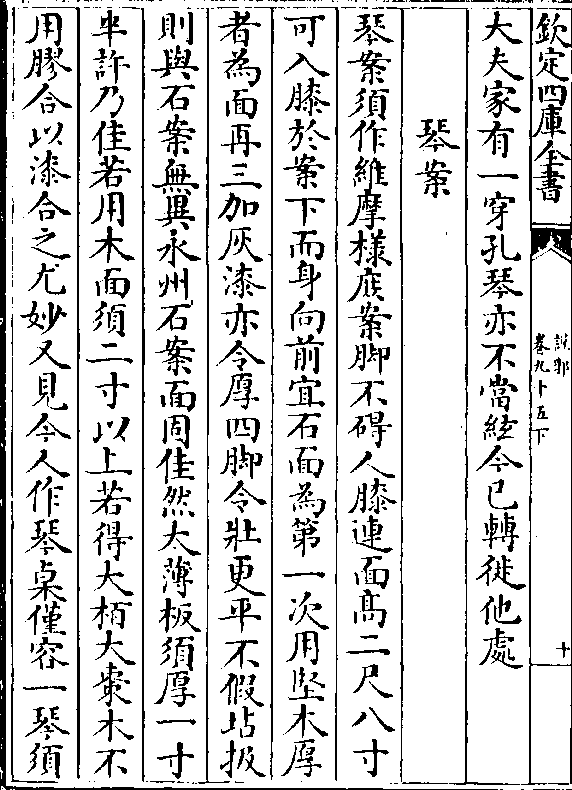 欽定四庫全書
說郛
卷九十五下
十
大夫家有一穿孔琴亦不當絃今已轉徙他處
琴案
琴案須作維摩様庻案脚不碍人膝連面髙二尺八寸
可入膝於案下而身向前宜石面為第一次用堅木厚
者為面再三加灰漆亦令厚四脚令壯更平不假坫扱
則與石案無異永州石案面固佳然太薄板須厚一寸
半許乃佳若用木面須二寸以上若得大栢大棗木不
用膠合以漆合之尤妙又見今人作琴桌僅容一琴須